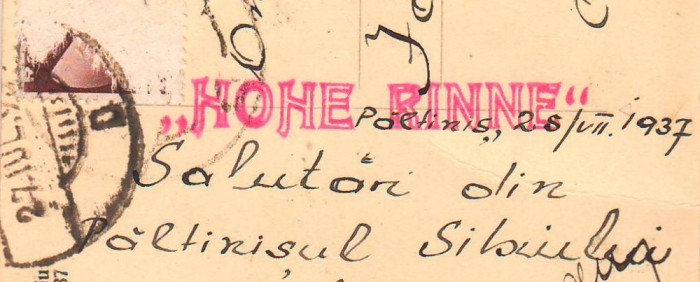 „HOHE RINNE“
Păltiniș, 28/VII. 1937
Salutări din
Păltinișul Sibiului